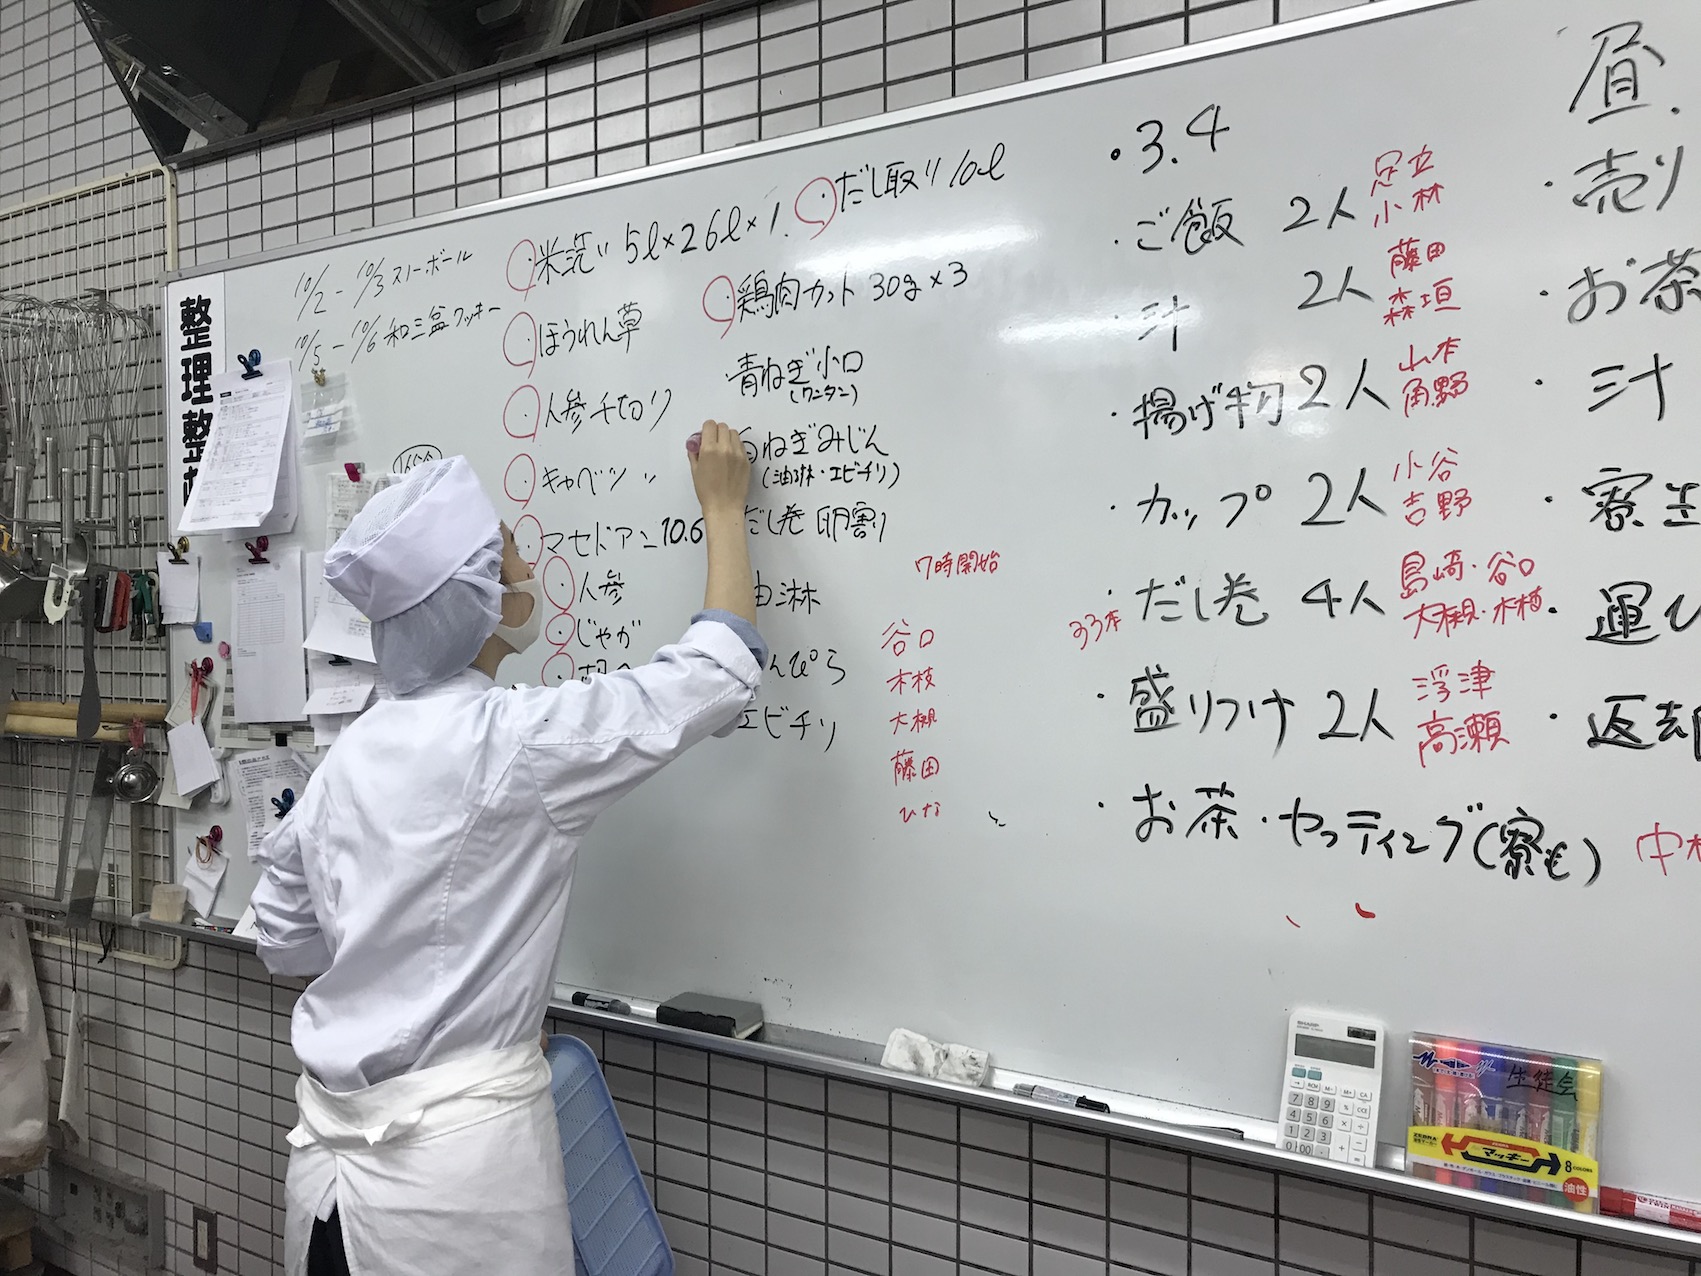 整理整
10/2 - 10/3 ストーボール
10/5 - 10/6 和三盆クッキー
・米洗い 5ℓ×2 6ℓ×1
・ほうれん草
・人参千切り
・キャベツ 〃
・マセドアン 10.6
・人参
・じゃが
・だし取り 10ℓ
・鶏肉カット 30g×3
・青ねぎ小口
(ワンタン)
白ねぎみじん
(油淋・エビチリ)
だし巻 卵割り
油淋
んぴら
エビチリ
7時開始
谷口
木枝
大槻
藤田
ひな
・3.4
・ご飯 2人 足立 小林
・汁 2人 藤田 森垣
・揚げ物 2人 山本 角野
・カップ 2人 小谷 吉野
33本 ・だし巻 4人 島﨑・谷口 大槻・木枝
・盛りつけ 2人 浮津 高瀬
・お茶・セッティング(寮も) 中
昼.
・売り
・お茶
・汁
・寮生
・運び
・返却
SHARP
生徒会
ZEBRA
マッキー
8 COLORS
油性